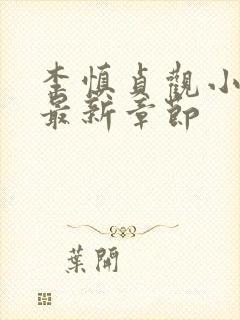 李慎貞觀小
最新章節
葉開